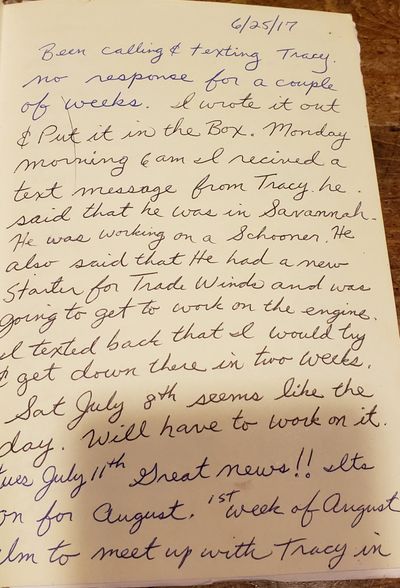 6/25/17
Been calling & texting Tracy.
no response for a couple
of weeks. I wrote it out
& Put it in the Box. Monday
morning 6am I recived a
text message from Tracy. he
said that he was in Savannah.
He was working on a Schooner. He
also said that He had a new
Starter for Trade Winds and was
going to get to work on the engine.
I texted back that I would try
& get down there in two weeks.
Sat July 8th seems like the
day. Will have to work on it.
Tues July 11th Great news!! Its
on for August. 1st week of August
Im to meet up with Tracy in